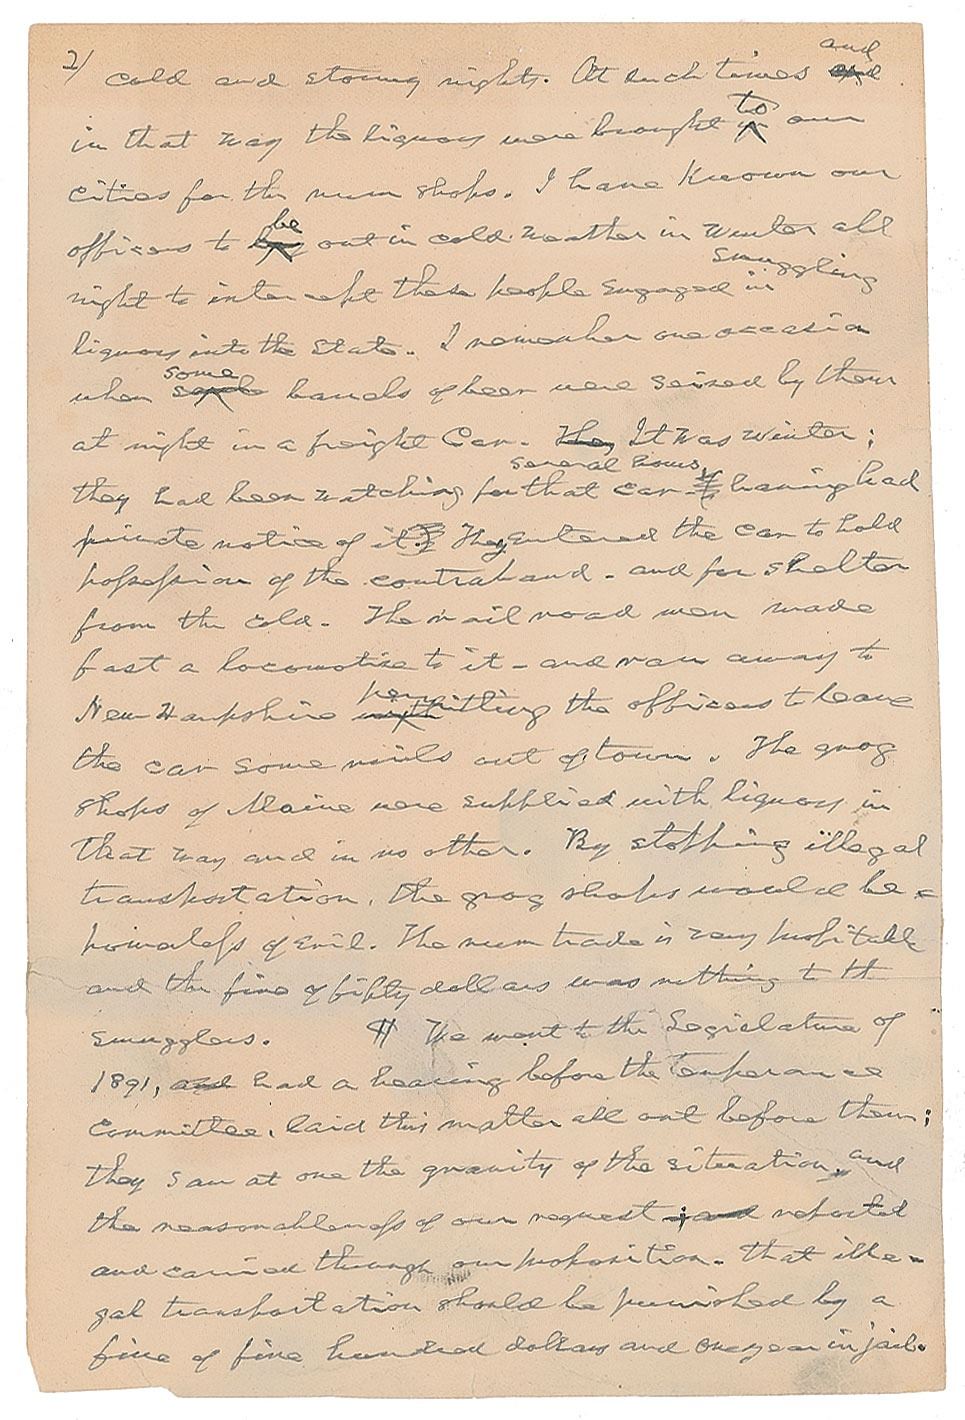 2/
cold and stormy nights. At such times and
in that way the liquors were brought to our
cities for the rum shops. I have known our
officers to be out in cold weather in winter all
night to intercept these people engaged in smuggling
liquors into the State. I remember one occasion
when some barrels of beer were seized by them
at night in a freight car. They It was winter;
they had been watching several hours for that car having had
private notice of it. They entered the car to hold
possession of the contraband - and for shelter
from the cold. The rail road men made
fast a locomotive to it - and ran away to
New Hampshire permitting the officers to leave
the car some miles out of town. The grog
shops of Maine were supplied with liquors in
that way and in no other. By stopping illegal
transportation, the grog shops would be
powerless of evil. The rum trade is very profitable
and the fine of fifty dollars was nothing to th
smugglers. ¶ We went to the Legislature of
1891, and had a hearing before the temperance
committee, laid this matter all out before them;
they saw at one the gravity of the situation, and
the reasonableness of our request; and reported
and carried through our proposition. That ille-
gal transportation should be punished by a
fine of five hundred dollars and one year in jail.